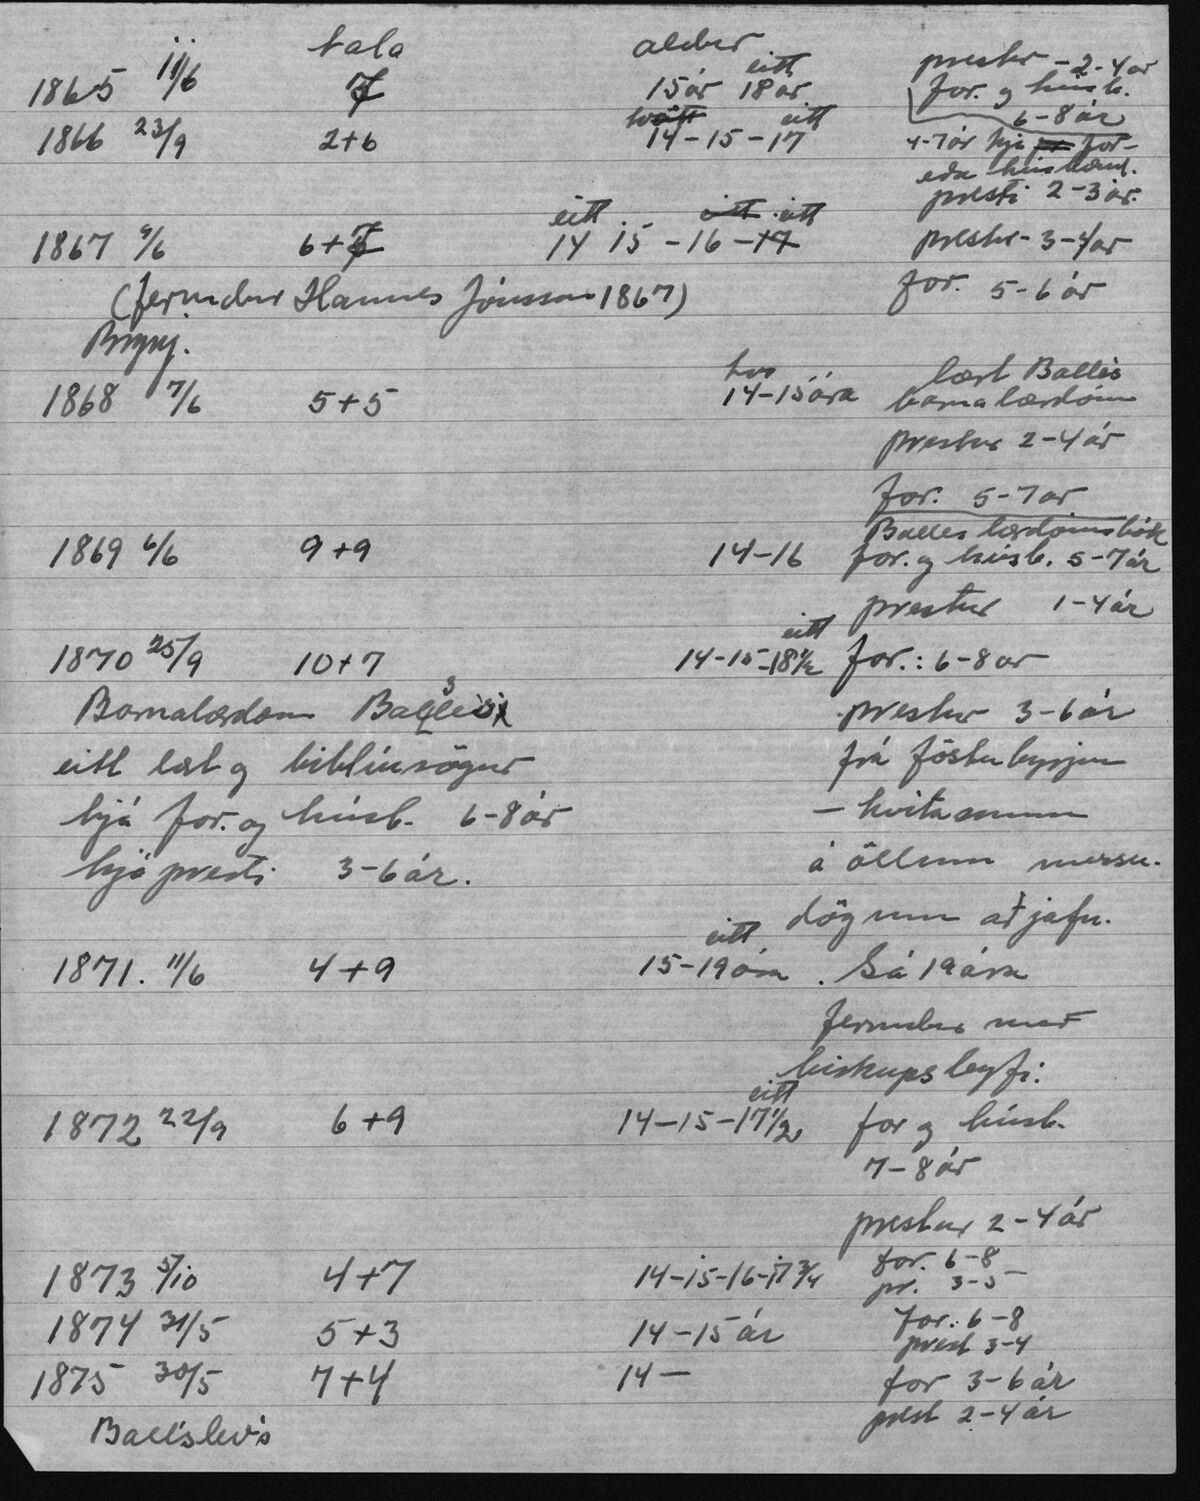 tala aldur
1865 11/6 7 15 ár eitt 18 ár prestur - 2-4 ár
for. og húsb. 6-8 ár
1866 23/9 2+6 14-15- eitt 17 4-7 ár hjá for-
eða húsbænd.
presti 2-3 ár.
1867 9/6 6+7 eitt 14 15 -16 -17 prestur 3-4 ár
(fermdur Hannes Jónsson 1867) for. 5-6 ár
Brynj.
1868 7/6 5+5 tvo 14-15 ára lært Balles
barnalærdóm
prestur 2-4 ár
for. 5-7 ár
Balles lærdómsbók
1869 6/6 9+9 14-16 for. og húsb. 5-7 ár
prestur 1-4 ár
1870 25/9 10+7 14-15- eitt 18 1/2 for.: 6-8 ár
Barnalærdom prestur 3-6 ár
eitt lært og biblíusögur frá föstubyrjun
hjá for. og húsb. 6-8 ár - hvítasunnu
hjá presti 3-6 ár. á öllum messu-
dögum að jafn.
1871. 11/6 4+9 15- eitt 19 ára. Sá 19 ára
fermdur með
biskupsleyfi.
1872 22/9 6+9 14-15- eitt 17 1/2 for og húsb.
7-8 ár
prestur 2-4 ár
1873 5/10 4+7 14-15-16-17 3/4 for. 6-8
pr. 3-5
1874 31/5 5+3 14-15 ár for. 6-8
prest 3-4
1875 30/5 7+4 14- for 3-6 ár
prest 2-4 ár
Ballslev's